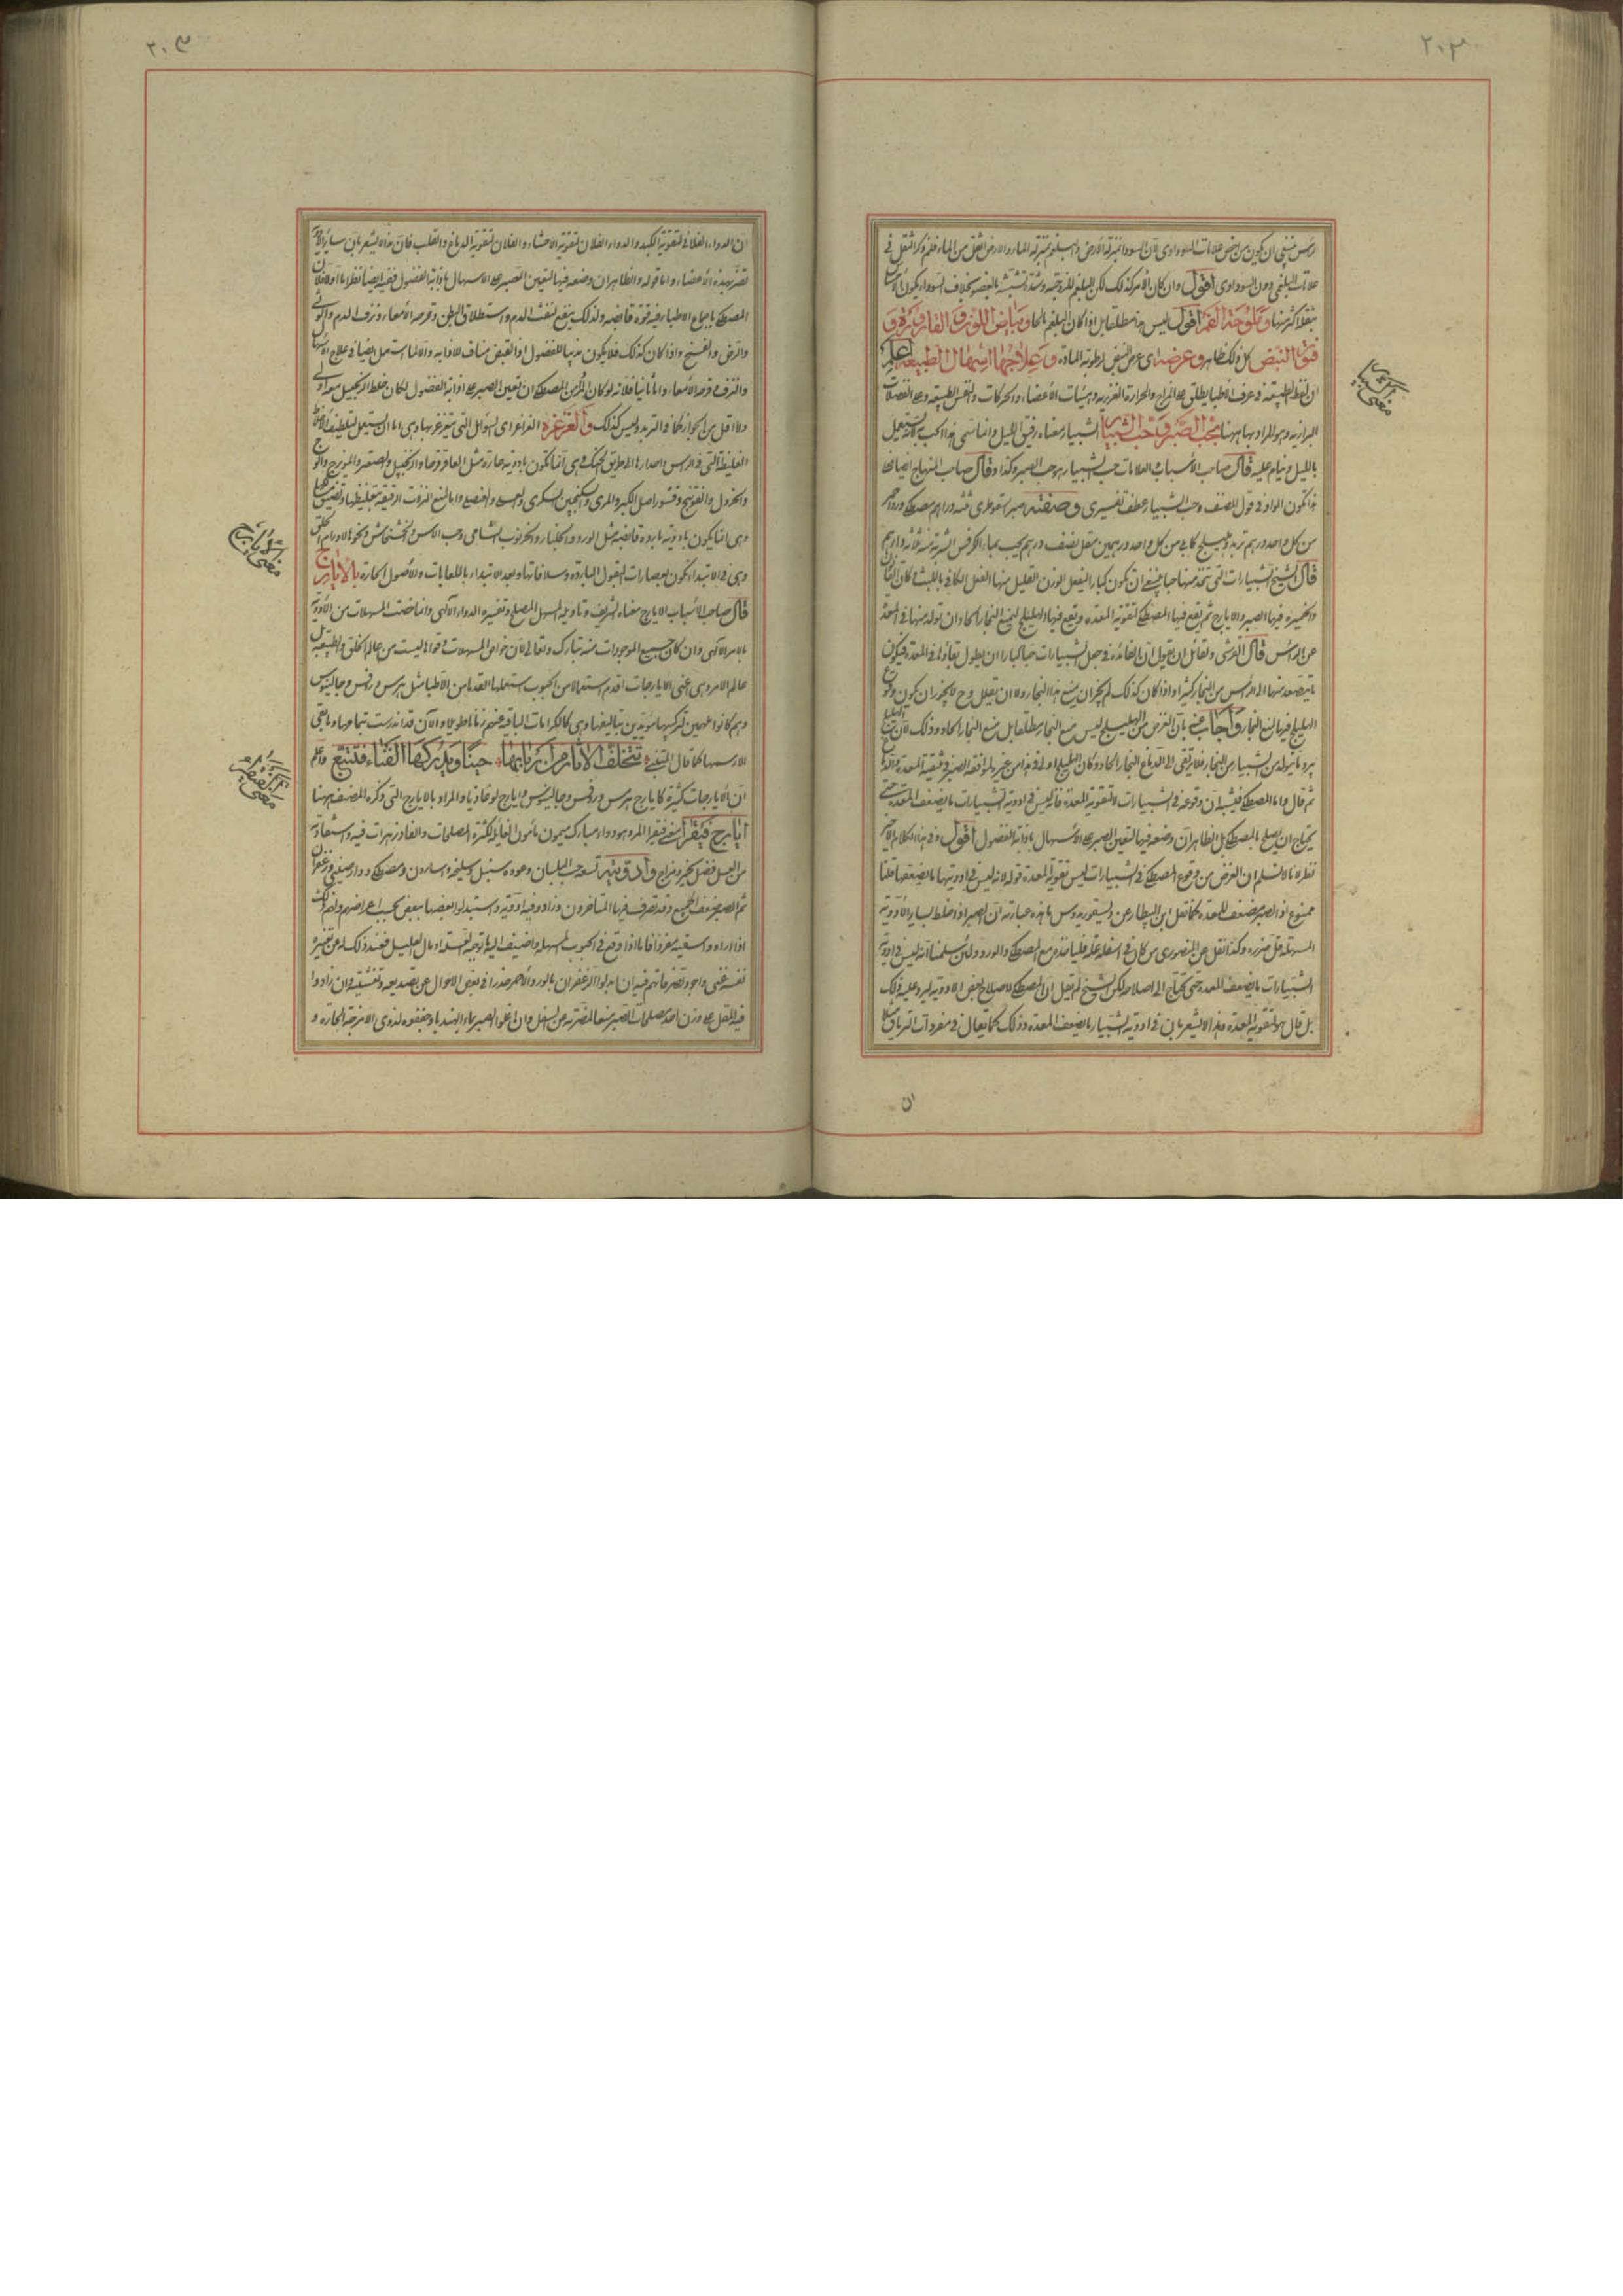 ٢٠٣
الرأس ينبغي ان يكون من بعض علامات السوداوي لان السوداء بمنزلة الارض والبلغم بمنزلة الماء والارض اثقل من الماء فلم ذكر الثقل في
علامات البلغمي دون السوداوي اقول وان كان الامر كذلك لكن البلغم للزوجته وشدة تشبثه بالعضو بخلاف السوداء يكون
ثقلا اكثر منها وملوحة الفم اقول ليس هذا مطلقا بل اذا كان البلغم مالحا وبياض اللون والقارورة و
فتور النبض كل ذلك ظاهر وعرضه اى عرض النبض لرطوبة المادة وعلاجهما اسهال الطبيعة اعلم
ان لفظ الطبيعة في عرف الاطبا يطلق على المزاج والحرارة الغريزية وهيئات الاعضاء والحركات والنفس الطبيعية وعلى الفضلات
البرازية وهو المراد بها ههنا بحب الصبر وحب الشبيار الشبيار معناه رفيق الليل وانما سمى هذا الحب به لانه يستعمل
بالليل وينام عليه قال صاحب الاسباب والعلامات حب الشبيار هو حب الصبر وكذا وقال صاحب المنهاج ايضا
فيكون الواو في قول المصنف وحب الشبيار عطف تفسيرى وصفته صبر اسقوطرى ثلثة دراهم مصطكى وورد احمر
من كل واحد درهم تربد وهليلج كابلي من كل واحد درهمين مقل نصف درهم يحبب بماء الكرفس الشربة منه ثلاثة دراهم
قال الشيخ الشبيارات التي تتخذ منها حبا فينبغي ان تكون كبارا ليفعل الوزن القليل منها الفعل الكافى باللبث
والخميرة فيها الصبر والايارج ثم يقع فيها المصطكى لتقوية المعدة ويقع فيها الهليلج ليمنع البخار الحاد ان تولد منها في المعدة
عن الرأس قال القرشى ولقائل ان يقول ان الفائدة في جعل الشبيارات حبا كبارا ان يطول بقاؤها في المعدة فيكون
ما يتصعد منها الى الرأس من البخار كثيرا واذا كان كذلك لم يجز ان يمنع هذا البخار ولا ان يقلل وح لا يجوز ان يكون وقوع
الهليلج فيها لمنع البخار واجاب عنه بان الغرض من الهليلج ليس منع البخار مطلقا بل منع البخار الحاد وذلك لان الهليلج
يبرد ما يتولد من الشبيار من البخار فلا يرتقى الى الدماغ البخار الحاد وكان الهليلج اولى في هذا من غيره لموافقة الصبر في تنقية المعدة
ثم قال واما المصطكى فيشبه ان وقوعه في الشبيارات لا لتقوية المعدة فانه ليس في ادوية الشبيارات ما يضعف المعدة حتى
يحتاج ان يصلح بالمصطكى بل الظاهر ان وضعه فيها لتعين الصبر على الاسهال باذابة الفضول اقول وفي هذا الكلام الاخير
نظر لانا لا نسلم ان الغرض من وقوع المصطكى في الشبيارات ليس تقوية المعدة قوله لانه ليس في ادويتها ما يضعفها قلنا
ممنوع اذ الصبر مضعف للمعدة كما نقل ابن البيطار عن ديسقوريدوس ما هذه عبارته ان الصبر اذا خلط بساير الادوية
المسهلة قل ضرره وكذا نقل عن المنصورى من كان في اسفله علة فلياخذه مع المصطكى والورد ولئن سلمنا انه ليس في ادوية
الشبيارات ما يضعف المعدة حتى يحتاج الى اصلاحه لكن الشيخ لم يقل ان المصطكى لاصلاح بعض الادوية ليرد عليه ذلك
بل قال هو لتقوية المعدة وهذا لا يشعر بان في ادوية الشبيار ما يضعف المعدة وذلك كما يقال في مفردات الترياق مثلا
ان
ان الدواء الفلانى لتقوية الكبد والدواء الفلان لتقوية الاحشاء والفلان لتقوية الدماغ والقلب فان هذا لا يشعر بان ساير الادوية
تضر بهذه الاعضاء واما قوله والظاهر ان وضعه فيها لتعين الصبر على الاسهال باذابة الفضول ففيه ايضا نظر اما اولا فلان
المصطكى باجماع الاطباء فيه قوة قابضة ولذلك ينفع لنفث الدم واستطلاق البطن وقرحة الامعاء ونزف الدم
والرض والفسخ واذا كان كذلك فلا يكون مذيبا للفضول اذ القبض مناف للاذابة والا لما استعمل ايضا في علاج الاسهال
والنزف وقرحة الامعاء واما ثانيا فلانه لو كان الغرض من المصطكى ان تعين الصبر على اذابة الفضول لكان خلط الزنجبيل معه اولى
ولا اقل من الجواز كما في التربد وليس كذلك والغرغرة الغراغر اى السوائل التي يتغرغر بها وهى اما ان يستعمل لتلطيف الاخلاط
الغليظة التي في الرأس واحدارها الى طريق الحنك وهى انما تكون بادوية حارة مثل العاقرقرحا والزنجبيل والصعتر والمويزج والوج
والخردل والفوتنج وقشور اصل الكبر والمرى والسكنجبين السكرى والعسلى والعنصلى واما لمنع النزلات الرقيقة بتغليظها
وهى انما يكون بادوية باردة قابضة مثل الورد والجلنار والخرنوب الشامى وحب الاس والخشخاش ونحوها لاورام الحلق
وهى في الابتداء تكون بعصارات البقول الباردة وسلاقاتها وبعد الابتداء باللعابات والاصول الحارة بالايارج
قال صاحب الاسباب الايارج معناه الشريف وتاويله المسهل المصلح وتفسيره الدواء الالهى وانما خصت المسهلات من الادوية
بالامر الالهى وان كان جميع الموجودات منه تبارك وتعالى لان خواص المسهلات وقواها ليست من عالم الخلق والطبيعة بل
عالم الامر وهى اعنى الايارجات اقدم استعمالا من الحبوب استعملها القدما من الاطبا مثل هرمس وروفس وجالينوس
وهم كانوا ملهمين تركيبها مؤيدين بتاليفها وهى كالكرامات الباقية عنهم زمانا طويلا والان قد اندرست بتمامها وما بقى
الا رسمها كما قال المتنبى تتخلف الاثار عن اربابها حينا ويدركها الفناء فتتبع واعلم
ان الايارجات كثيرة كايارج هرمس وروفس وجالينوس وايارج لوغاذيا والمراد بالايارج التي ذكره المصنف ههنا
ايارج فيقرا معنى فيقرا المر وهو دواء مبارك ميمون مامون الغايلة لكثرة المصلحات والفادزهرات فيه
من العسل فضل تخمير ومزاج وادويته تسعة حب البلسان وعوده سنبل سليخة واسارون ومصطكى ودارصينى وزعفران
ثم الصبر ضعف الجميع وقد تصرف فيها المتاخرون وزادوا فيه ادوية واستبدلوا بعضها ببعض بحسب اعراضهم
اذا ارادوا سقيه مفردا فاما اذا وقع في الحبوب المسهلة واضيف اليها توجه العلة او مال العليل فعند ذلك له عن تغييره
نفسه غنى واجود تصرفاتهم فيه ان ابدلوا الزعفران بالورد الاحمر حذرا في بعض الاحوال عن تصديعه وتغشيته وان زادوا
فيه المقل على وزن احد مصلحات الصبر منعا لمضرته عن السفل وان غسلوا الصبر بماء الهندبا وجففوه لذوى الامزجة الحارة و